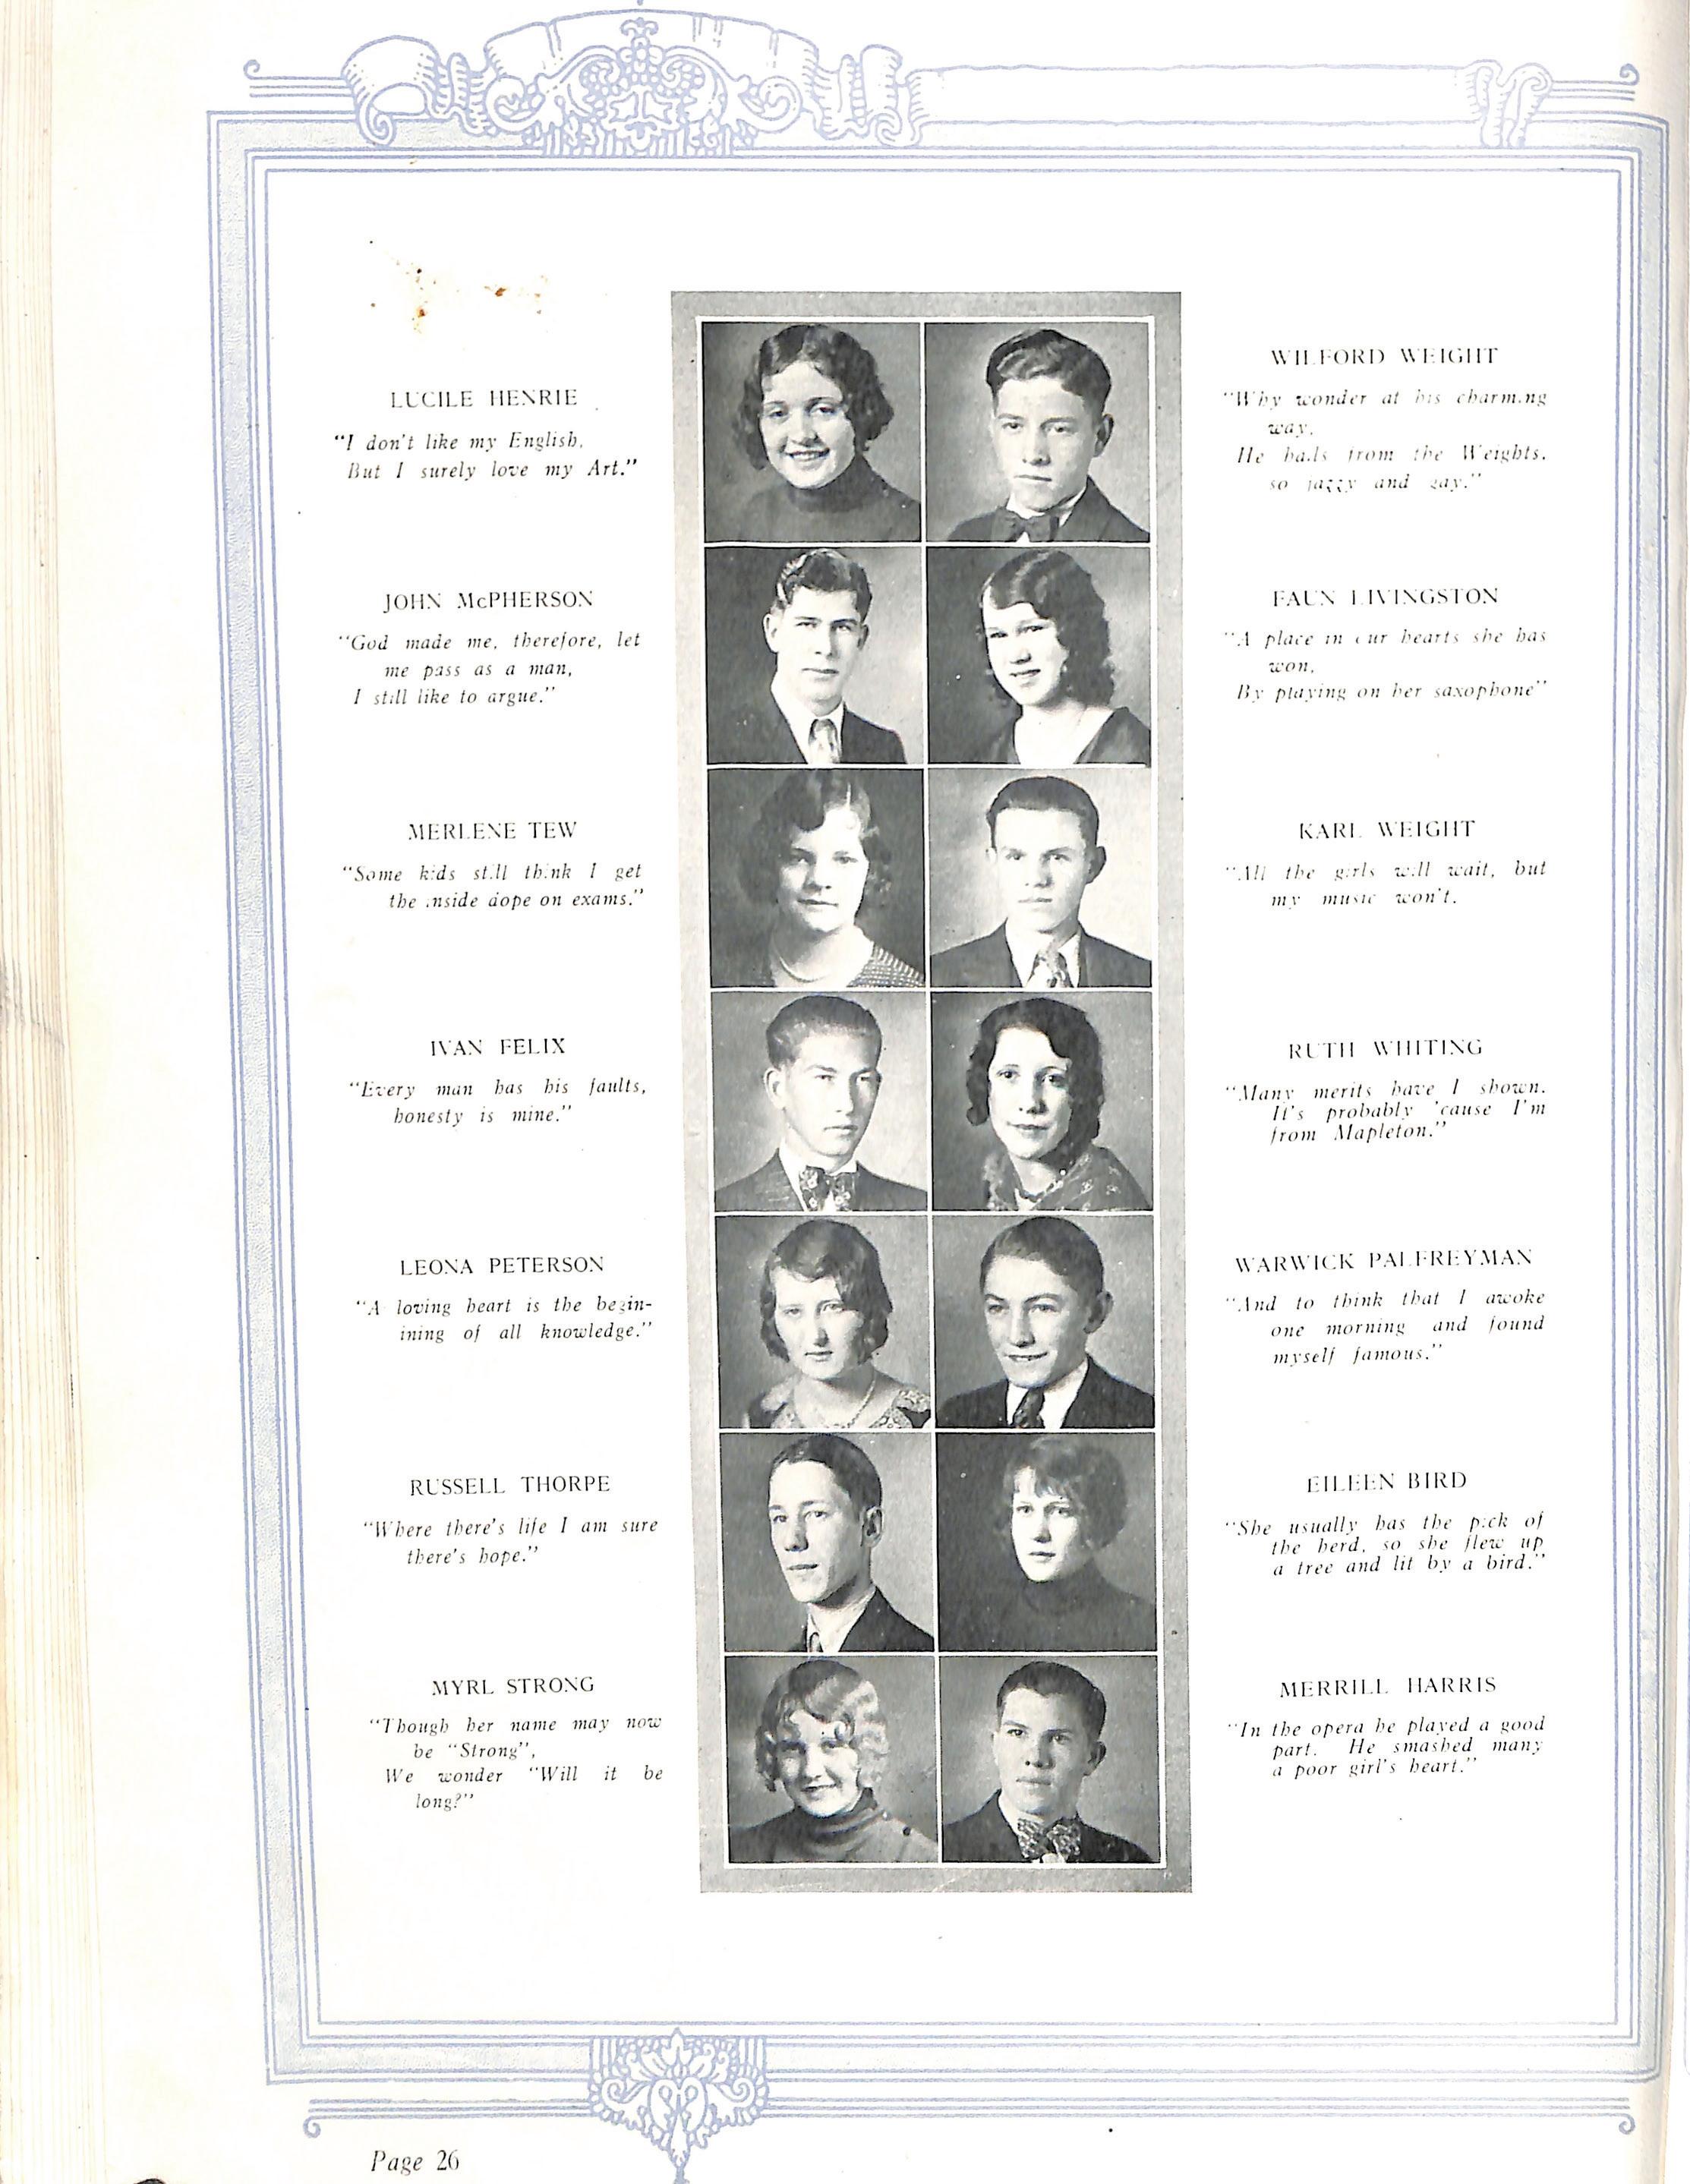 LUCILE HENRIE
"I don't like my English,
But I surely love my Art."
JOHN McPHERSON
"God made me, therefore, let
me pass as a man,
I still like to argue."
MERLENE TEW
"Some kids still think I get
the inside dope on exams."
IVAN FELIX
"Every man has his faults,
honesty is mine."
LEONA PETERSON
"A loving heart is the begin-
ining of all knowledge."
RUSSELL THORPE
"Where there's life I am sure
there's hope."
MYRL STRONG
"Though her name may now
be "Strong",
We wonder "Will it be
long?"
WILFORD WEIGHT
"Why wonder at his charming
way,
He hails from the Weights,
so jazzy and gay."
FAUN LIVINGSTON
"A place in our hearts she has
won,
By playing on her saxophone"
KARL WEIGHT
"All the girls will wait, but
my music won't.
RUTH WHITING
"Many merits have I shown.
It's probably 'cause I'm
from Mapleton."
WARWICK PALFREYMAN
"And to think that I awoke
one morning and found
myself famous."
EILEEN BIRD
"She usually has the pick of
the herd, so she flew up
a tree and lit by a bird."
MERRILL HARRIS
"In the opera he played a good
part. He smashed many
a poor girl's heart."
Page 26